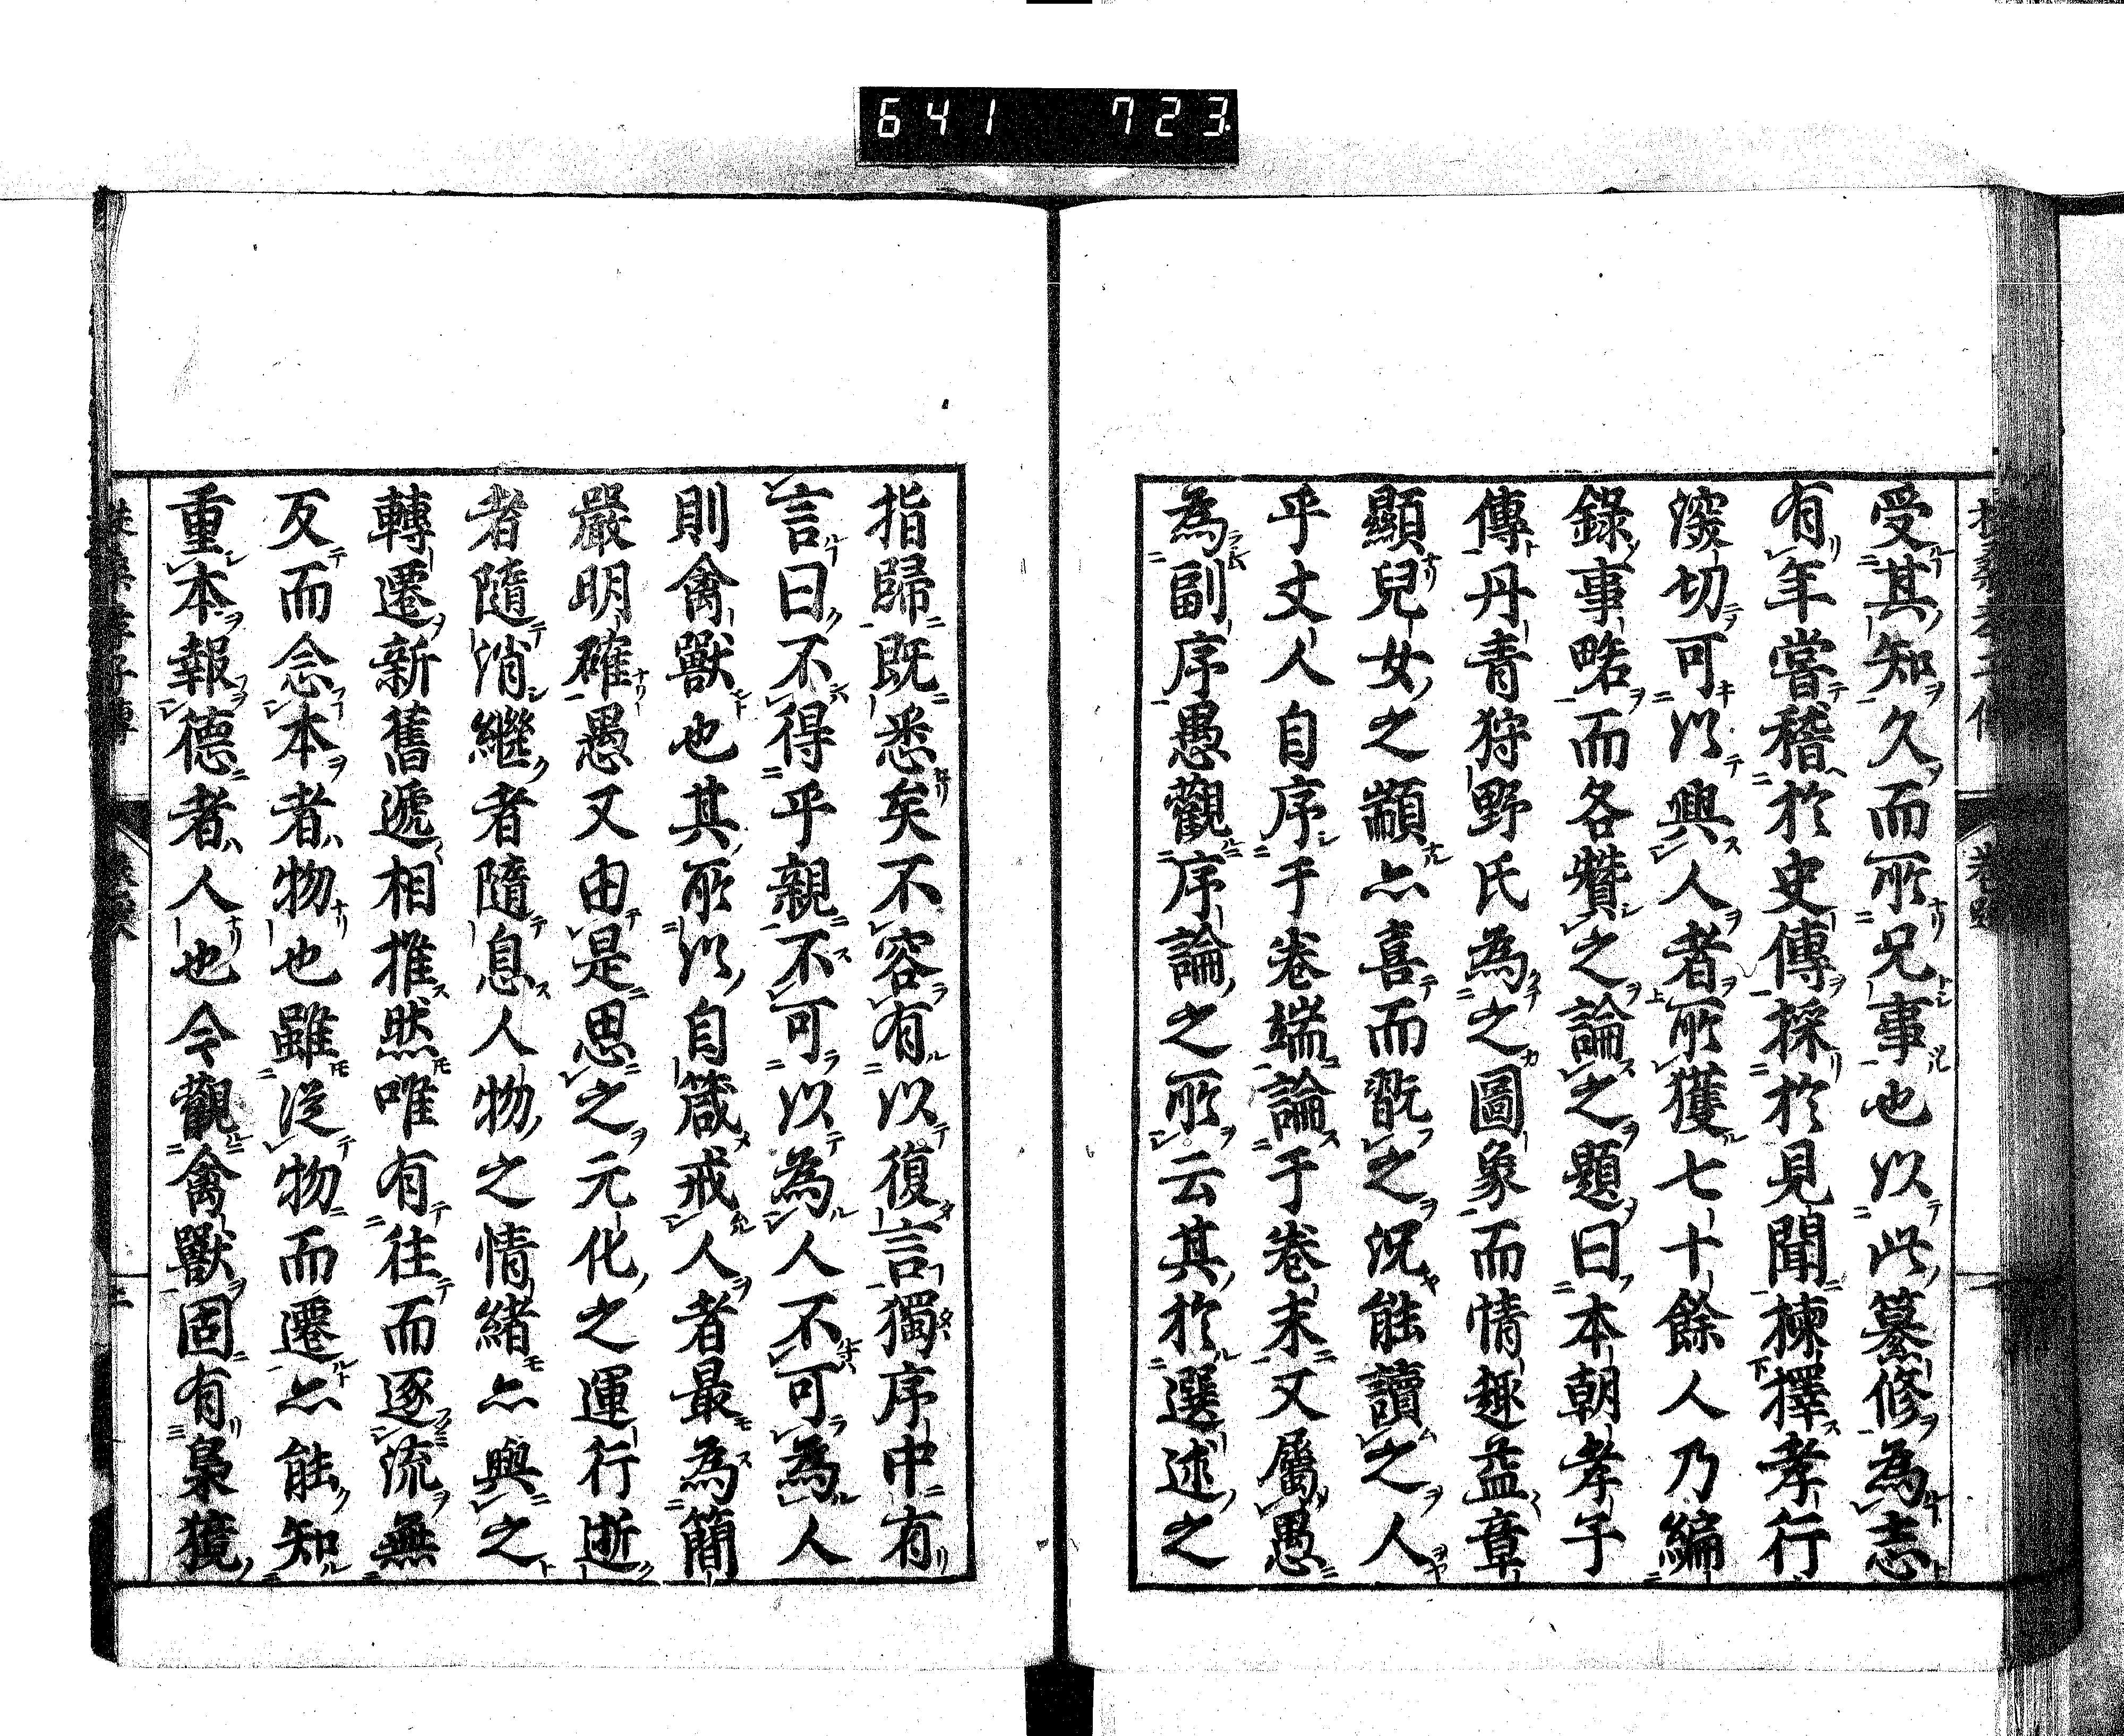 641 723
受其知久而所兄事也以此纂修為志
有年嘗稽於史傳採於見聞揀擇孝行
深切可以興人者所獲七十餘人乃編
錄事畧而各贊之論之題曰本朝孝子
傳丹青狩野氏為之圖象而情趣益章
顯兒女之顓亦喜而翫之況能讀之人
乎丈人自序于卷端論于卷末又屬愚
為副序愚觀序論之所云其於選述之
指歸既悉矣不容有以復言獨序中有
言曰不得乎親不可以為人不可為人
則禽獸也其所以自箴戒人者最為簡
嚴明確愚又由是思之元化之運行逝
者隨消繼者隨息人物之情緒亦與之
轉遷新舊遞相推然唯有往而逐流無
反而念本者物也雖從物而遷亦能知
重本報德者人也今觀禽獸固有梟獍